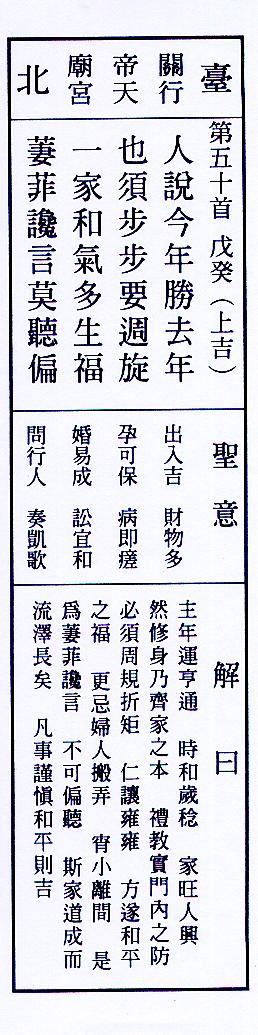 臺
關行
帝天
廟宮
北
第五十首 戊癸(上吉)
人說今年勝去年
也須步步要週旋
一家和氣多生福
萋菲讒言莫聽偏
聖意
出入吉 財物多
孕可保 病即瘥
婚易成 訟宜和
問行人 奏凱歌
解曰
主年運亨通 時和歲稔 家旺人興
然修身乃齊家之本 禮教實門內之防
必須周規折矩 仁讓雍雍 方遂和平
之福 更忌婦人搬弄 宵小離間 是
為萋菲讒言 不可偏聽 斯家道成而
流澤長矣 凡事謹慎和平則吉